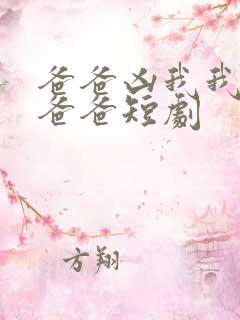 爸爸凶我我
爸爸短劇
方翔